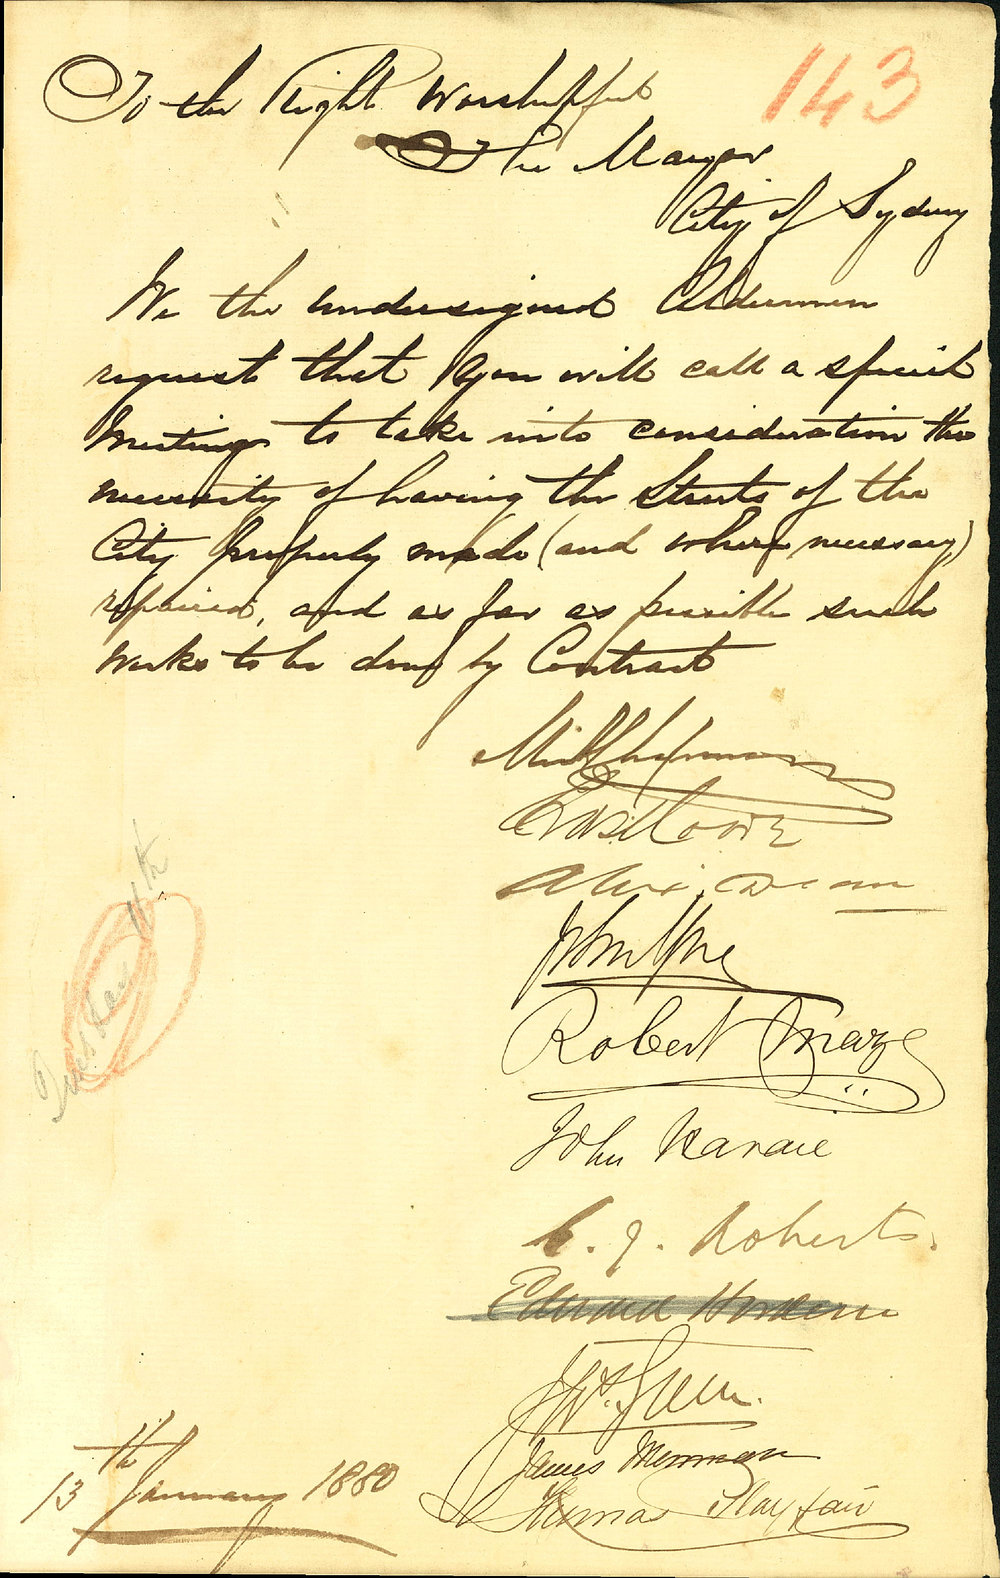 143
To the Right Worshipful
The Mayor
City of Sydney
We the undersigned Aldermen
request that you will call a special
Meeting to take into consideration the
necessity of having the Streets of the
City properly made (and where necessary)
repaired, and as far as possible such
works to be done by Contract
Mich Chapman
John
Robert
John
C. J. Roberts.
Edward Hordern
Green.
James Merriman
Thomas Playfair
13th January 1880